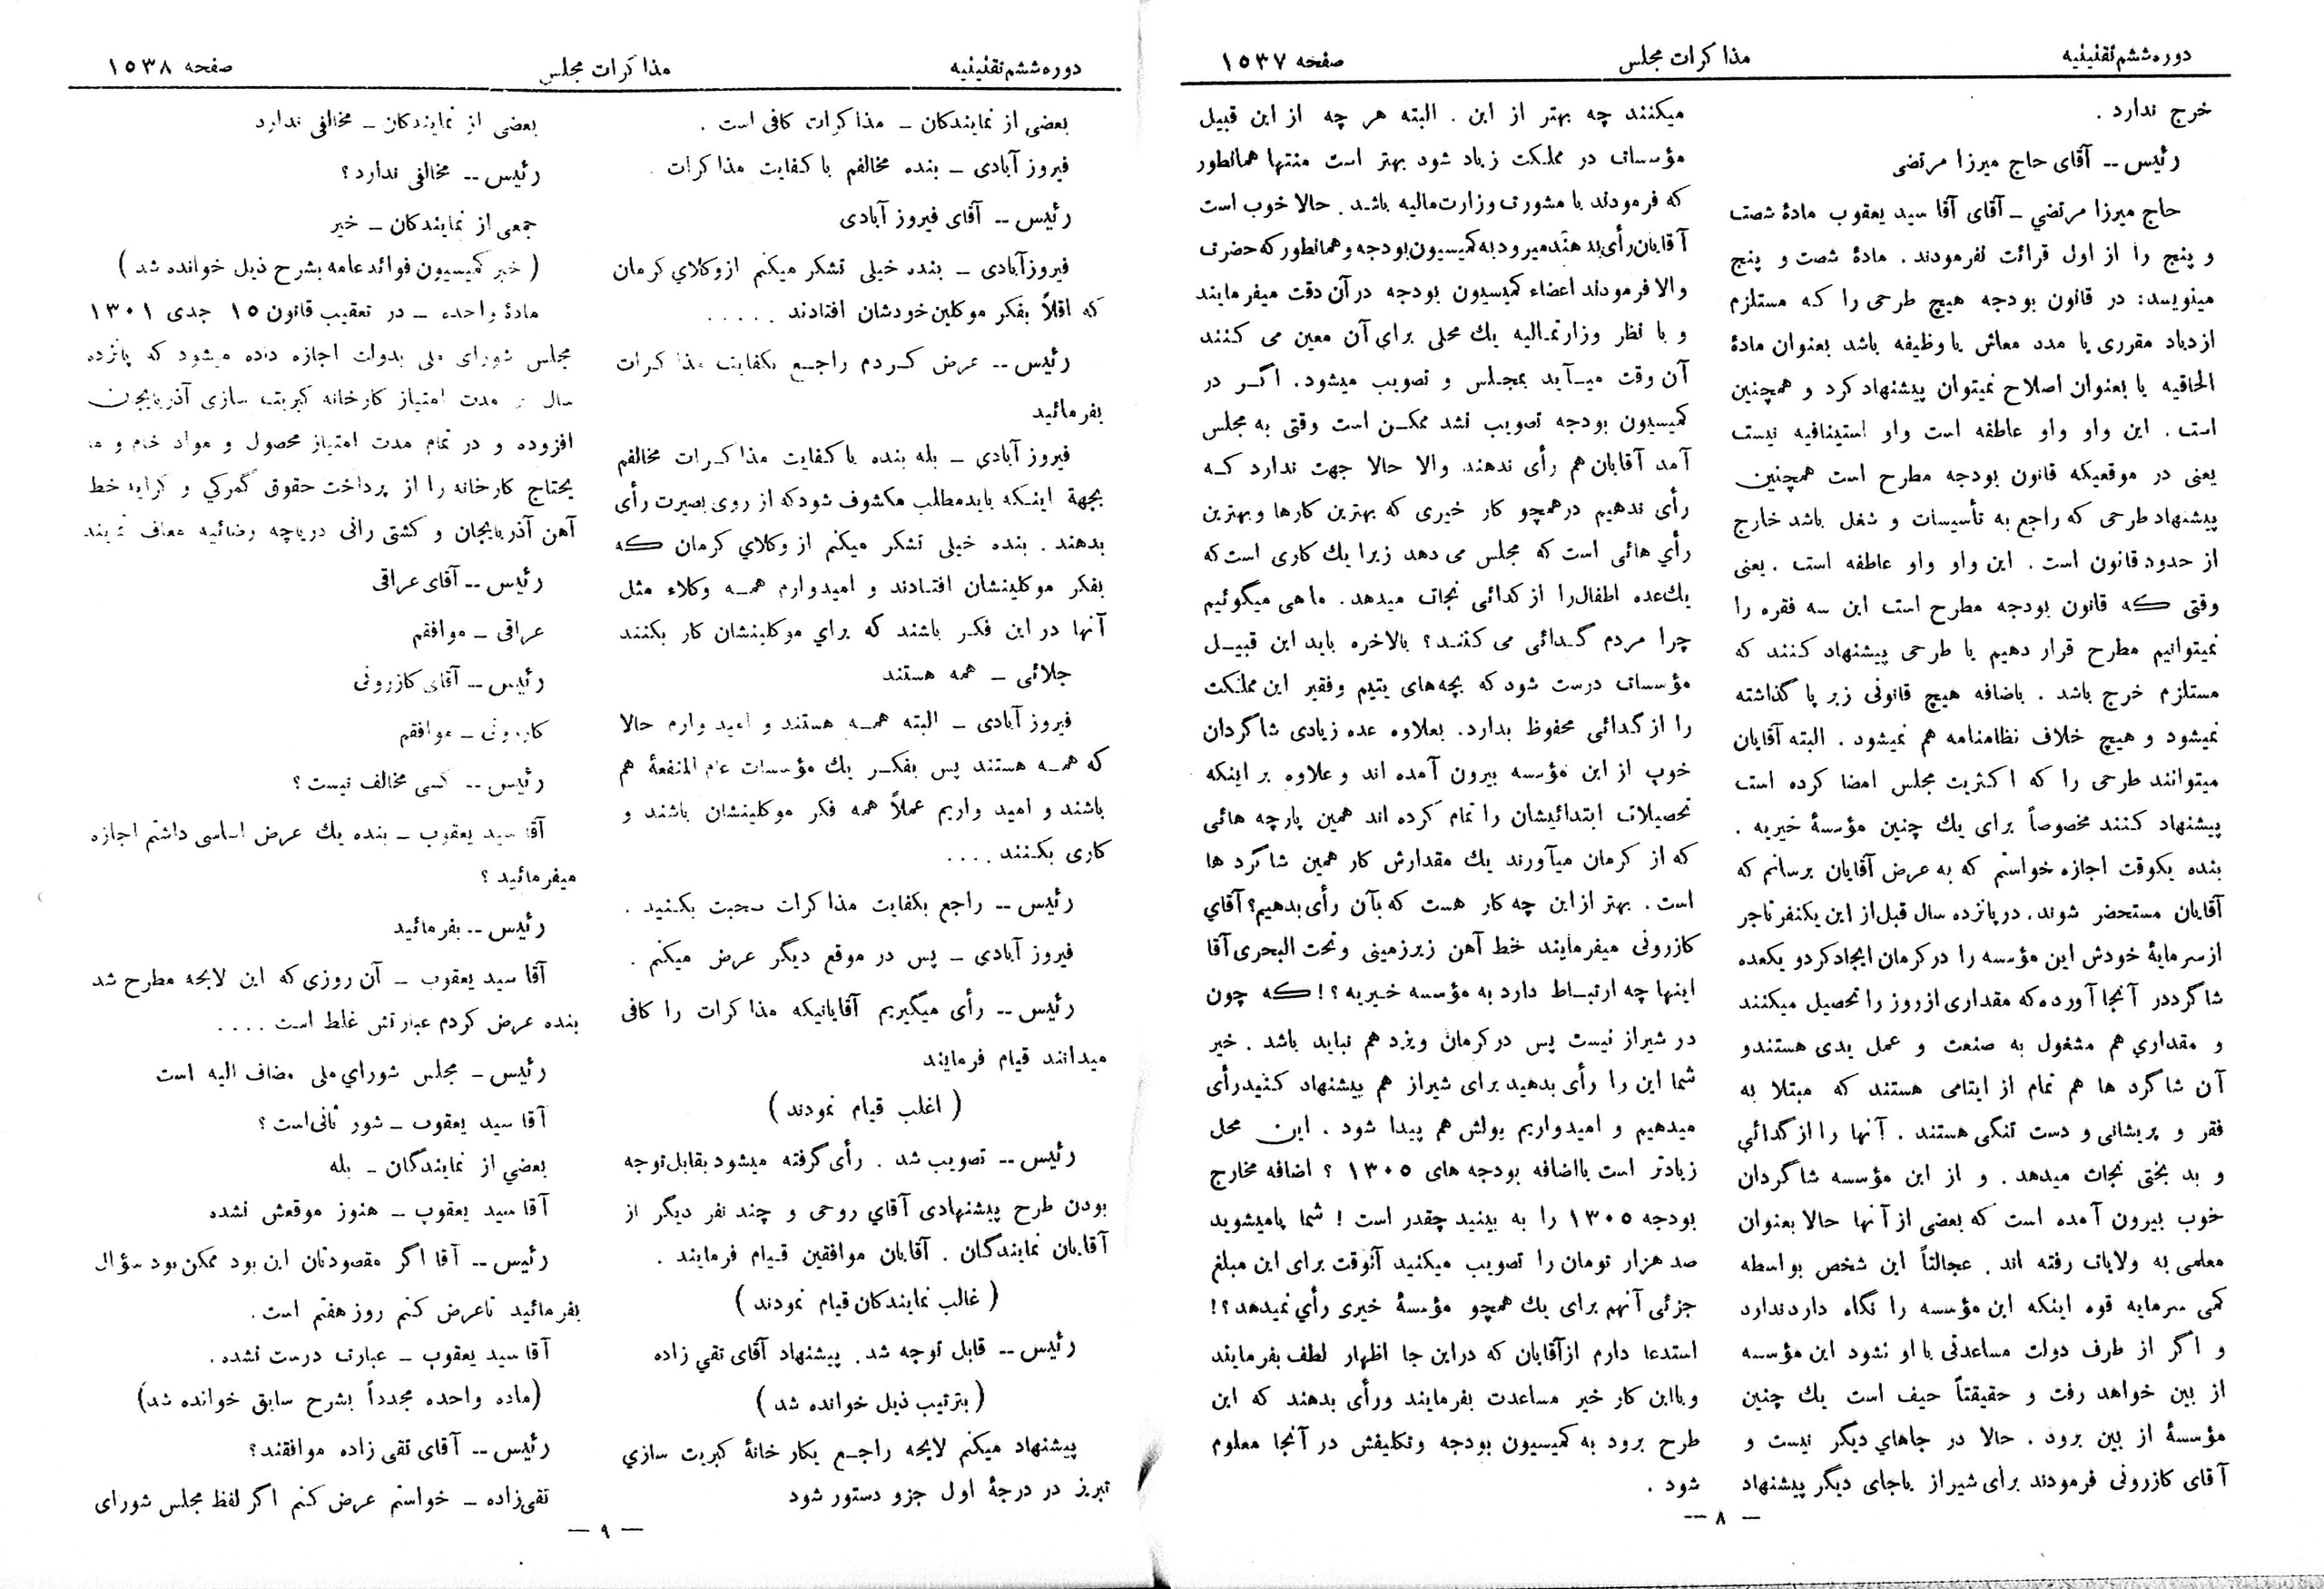 دوره ششم تقنینیه
مذاکرات مجلس
صفحه ۱۵۳۷
خرج ندارد .
رئیس -- آقای حاج میرزا مرتضی
حاج میرزا مرتضي ـ آقای آقا سید یعقوب مادۀ شصت
و پنج را از اول قرائت نفرمودند . مادۀ شصت و پنج
مینویسد: در قانون بودجه هیچ طرحی را که مستلزم
ازدیاد مقرری یا مدد معاش یا وظیفه باشد بعنوان مادۀ
الحاقیه یا بعنوان اصلاح نمیتوان پیشنهاد کرد و همچنین
است . این واو واو عاطفه است واو استینافیه نیست
یعنی در موقعیکه قانون بودجه مطرح است همچنین
پیشنهاد طرحی که راجع به تأسیسات و شغل باشد خارج
از حدود قانون است . این واو واو عاطفه است . یعنی
وقتی که قانون بودجه مطرح است این سه فقره را
نمیتوانیم مطرح قرار دهیم یا طرحی پیشنهاد کنند که
مستلزم خرج باشد . باضافه هیچ قانونی زیر پا گذاشته
نمیشود و هیچ خلاف نظامنامه هم نمیشود . البته آقایان
میتوانند طرحی را که اکثریت مجلس امضا کرده است
پیشنهاد کنند مخصوصاً برای یك چنین مؤسسۀ خیریه .
بنده یکوقت اجازه خواستم که به عرض آقایان برسانم که
آقایان مستحضر شوند . در پانزده سال قبل از این یکنفر تاجر
از سرمایۀ خودش این مؤسسه را در کرمان ایجاد کرد و یکعده
شاگرد در آنجا آورده که مقداری از روز را تحصیل میکنند
و مقداري هم مشغول به صنعت و عمل یدی هستندو
آن شاگرد ها هم تمام از ایتامی هستند که مبتلا به
فقر و پریشانی و دست تنگی هستند . آنها را از گدائي
و بد بختی نجات میدهد . و از این مؤسسه شاگردان
خوب بیرون آمده است که بعضی از آنها حالا بعنوان
معلمی به ولایات رفته اند . عجالتاً این شخص بواسطه
کمی سرمایه قوه اینکه این مؤسسه را نگاه دارد ندارد
و اگر از طرف دولت مساعدتی با او نشود این مؤسسه
از بین خواهد رفت و حقیقتاً حیف است یك چنین
مؤسسۀ از بین برود . حالا در جاهاي دیگر نیست و
آقای کازرونی فرمودند برای شیراز یا جای دیگر پیشنهاد
میکنند چه بهتر از این . البته هر چه از این قبیل
مؤسسات در مملکت زیاد شود بهتر است منتها همانطور
که فرمودند با مشورت وزارت مالیه باشد . حالا خوب است
آقایان رأی بدهند میرود به کمیسیون بودجه و همانطور که حضرت
والا فرمودند اعضاء کمیسیون بودجه در آن دقت میفرمایند
و با نظر وزارتمالیه یك محلی برای آن معین می کنند
آن وقت میآید بمجلس و تصویب میشود . اگر در
کمیسیون بودجه تصویب نشد ممکن است وقتی به مجلس
آمد آقایان هم رأی ندهند والا حالا جهت ندارد که
رأی ندهیم در همچو کار خیری که بهترین کارها و بهترین
رأي هائی است که مجلس می دهد زیرا یك کاری است که
یك عده اطفال را از گدائی نجات میدهد . ما هی میگوئیم
چرا مردم گدائی می کنند ؟ بالاخره باید این قبیل
مؤسسات درست شود که بچه های یتیم و فقیر این مملکت
را از گدائی محفوظ بدارد . بعلاوه عده زیادی شاگردان
خوب از این مؤسسه بیرون آمده اند و علاوه بر اینکه
تحصیلات ابتدائیشان را تمام کرده اند همین پارچه هائی
که از کرمان میآورند یك مقدارش کار همین شاگرد ها
است . بهتر از این چه کار هست که بآن رأی بدهیم؟ آقاي
کازرونی میفرمایند خط آهن زیرزمینی و تحت البحری آقا
اینها چه ارتباط دارد به مؤسسه خیریه ؟! که چون
در شیراز نیست پس در کرمان ویزد هم نباید باشد . خیر
شما این را رأی بدهید برای شیراز هم پیشنهاد کنید رأی
میدهیم و امیدواریم پولش هم پیدا شود . این محل
زیادتر است یا اضافه بودجه های ۱۳۰۵ ؟ اضافه مخارج
بودجه ۱۳۰۵ را به بینید چقدر است ! شما پامیشوید
صد هزار تومان را تصویب میکنید آنوقت برای این مبلغ
جزئی آنهم برای یك همچو مؤسسۀ خیری رأي نمیدهد ؟!
استدعا دارم از آقایان که در این جا اظهار لطف بفرمایند
و با این کار خیر مساعدت بفرمایند ورأی بدهند که این
طرح برود به کمیسیون بودجه و تکلیفش در آنجا معلوم
شود .
— ۸ —
دوره ششم تقنینیه
مذاکرات مجلس
صفحه ۱۵۳۸
بعضی از نمایندکان ـ مذاکرات کافی است .
فیروز آبادی ـ بنده مخالفم با کفایت مذاکرات .
رئیس -- آقای فیروز آبادی
فیروزآبادی ـ بنده خیلی تشکر میکنم از وکلاي کرمان
که اقلاً بفکر موکلین خودشان افتادند . . . . .
رئیس -- عرض کردم راجع بکفایت مذاکرات
بفرمائید
فیروز آبادي ـ بله بنده با کفایت مذاکرات مخالفم
بجهة اینکه باید مطلب مکشوف شود که از روی بصیرت رأی
بدهند . بنده خیلی تشکر میکنم از وکلاي کرمان که
بفکر موکلینشان افتادند و امیدوارم همه وکلاء مثل
آنها در این فکر باشند که براي موکلینشان کار بکنند
جلائی ـ همه هستند
فیروز آبادی ـ البته همه هستند و امید وارم حالا
که همه هستند پس بفکر یك مؤسسات عام المنفعۀ هم
باشند و امید واریم عملاً همه فکر موکلینشان باشند و
کاری بکنند . . . .
رئیس -- راجع بکفایت مذاکرات صحبت بکنید .
فیروز آبادی ـ پس در موقع دیگر عرض میکنم .
رئیس -- رأی میگیریم آقایانیکه مذاکرات را کافی
میدانند قیام فرمایند
( اغلب قیام نمودند )
رئیس -- تصویب شد . رأی گرفته میشود بقابل توجه
بودن طرح پیشنهادی آقاي روحی و چند نفر دیگر از
آقایان نمایندگان . آقایان موافقین قیام فرمایند .
( غالب نمایندکان قیام نمودند )
رئیس -- قابل توجه شد . پیشنهاد آقای تقي زاده
( بترتیب ذیل خوانده شد )
پیشنهاد میکنم لایحه راجع بکار خانۀ کبریت سازي
تبریز در درجۀ اول جزو دستور شود
بعضی از نمایندکان ـ مخالفی ندارد
رئیس -- مخالفی ندارد ؟
جمعی از نمایندکان ـ خیر
( خبر کمیسیون فوائد عامه بشرح ذیل خوانده شد )
مادۀ واحده ـ در تعقیب قانون ۱۵ جدی ۱۳۰۱
مجلس شورای ملی بدولت اجازه داده میشود که پانزده
سال بر مدت امتیاز کارخانه کبریت سازی آذربایجان
افزوده و در تمام مدت امتیاز محصول و مواد خام و ما
یحتاج کارخانه را از پرداخت حقوق گمرکي و کرایه خط
آهن آذربایجان و کشتی رانی دریاچه رضائیه معاف نمایند
رئیس -- آقای عراقی
عراقی ـ موافقم
رئیس -- آقای کازرونی
کازرونی ـ موافقم
رئیس -- کسی مخالف نیست ؟
آقا سید یعقوب ـ بنده یك عرض اساسی داشتم اجازه
میفرمائید ؟
رئیس -- بفرمائید
آقا سید یعقوب ـ آن روزی که این لایحه مطرح شد
بنده عرض کردم عبارتش غلط است . . . .
رئیس ـ مجلس شوراي ملی مضاف الیه است
آقا سید یعقوب ـ شور ثانی است ؟
بعضي از نمایندگان ـ بله
آقا سید یعقوب ـ هنوز موقعش نشده
رئیس -- آقا اگر مقصودتان این بود ممکن بود سؤال
بفرمائید تا عرض کنم روز هفتم است .
آقا سید یعقوب ـ عبارت درست نشده .
(ماده واحده مجدداً بشرح سابق خوانده شد)
رئیس -- آقای تقی زاده موافقند؟
تقی‌زاده ـ خواستم عرض کنم اکر لفظ مجلس شورای
— ۹ —